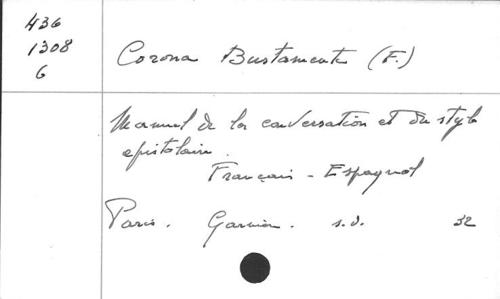 436
1308
6
Corona Bustamente (F.)
Manuel de la conversation et du style
epistolaire.
Français - Espagnol
Paris. Garnier. s.d. 32